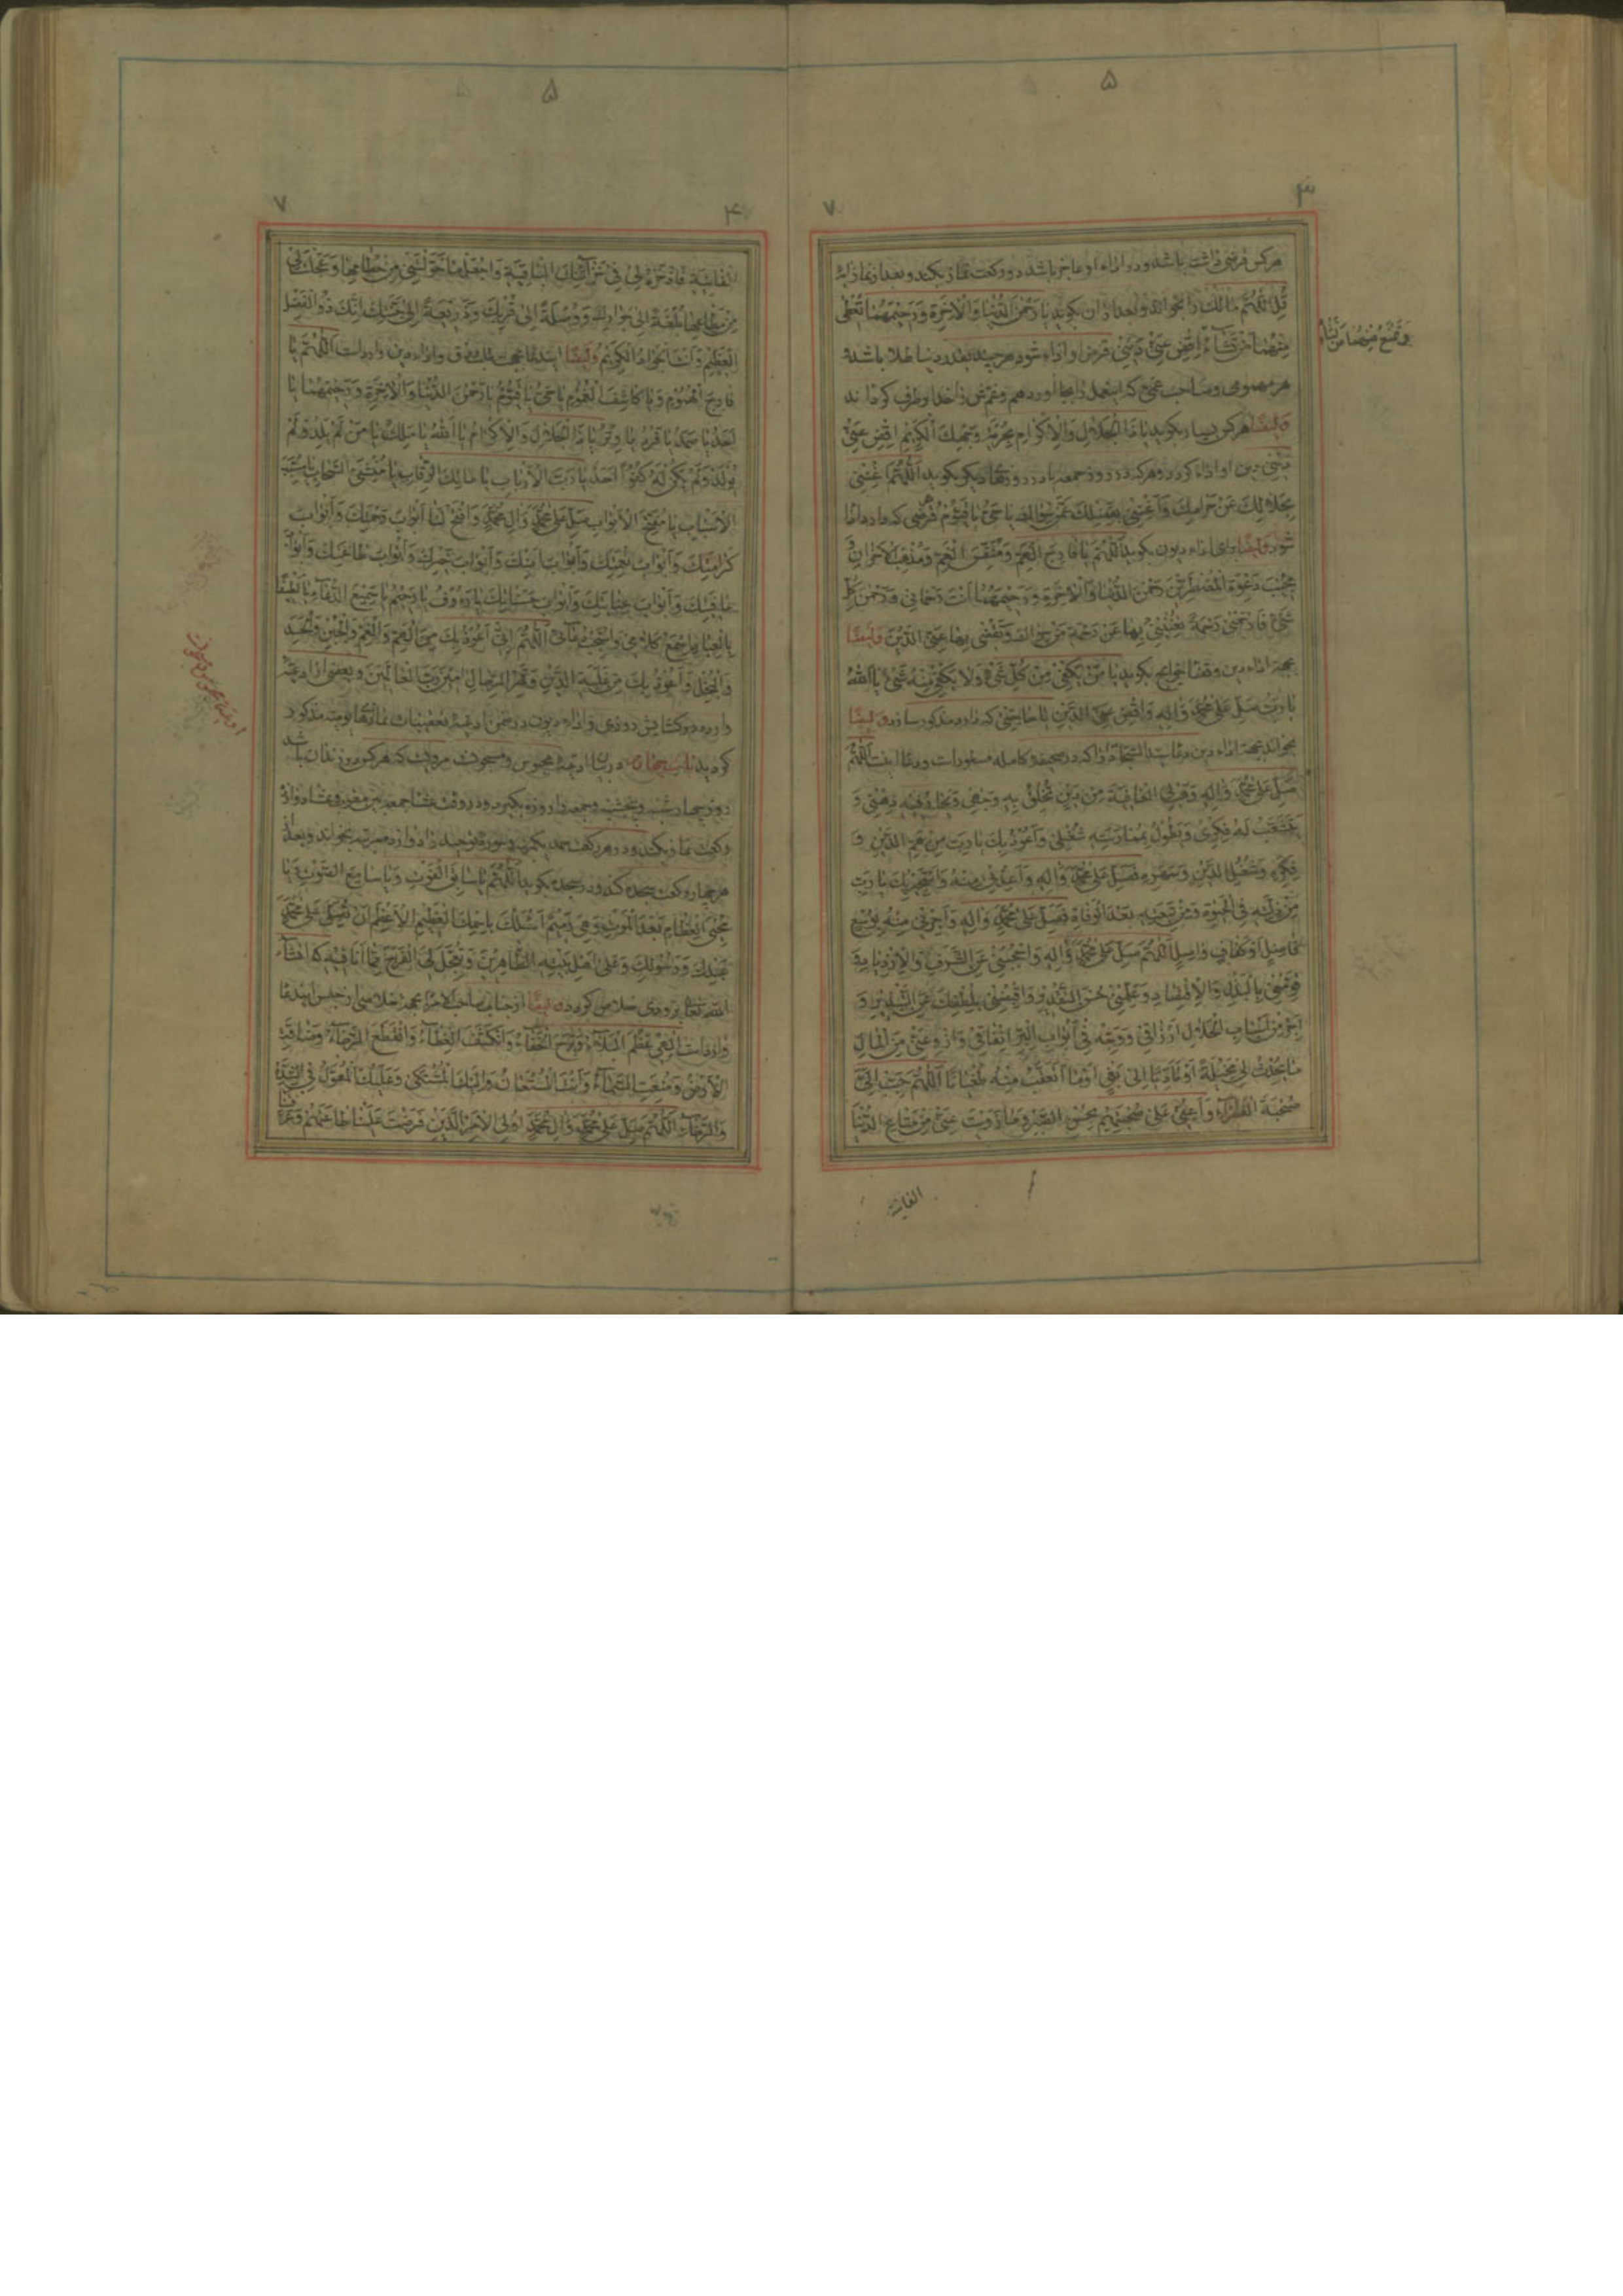 ۵
۳
۷
هرکس قرضی داشته باشد و در اداء او عاجز باشد دو رکعت نماز بکند و بعد از نماز آیهٔ
قُلِ اللّٰهُمَّ مالِكَ را بخواند و بعد از آن بگوید یا رَحْمٰنَ الدُّنْیا وَالْاٰخِرَةِ وَرَحیمَهُما تُعْطی
مِنْهُما مَنْ تَشاءُ اِقْضِ عَنّی دَیْنی قرض او اداء شود هر چند بقدر دنیا طلا باشد و
وَتَمْنَعُ مِنْهُما مَنْ تَشاءُ
هر مهمومی و صاحب غمی که این عمل را بجا آورد هم و غمش را خدا برطرف کرداند
وَایضًا هر که بسیار بکوید یا ذَا الْجَلالِ وَالْاِکْرامِ بِحُرْمَةِ وَجْهِكَ الْکَریمِ اِقْضِ عَنّی
دَیْنی دین او ادا کردد و هر که در روز جمعه یا در روزهای دیکر بکوید اَللّٰهُمَّ اَغْنِنی
بِحَلالِكَ عَنْ حَرامِكَ وَاَغْنِنی بِفَضْلِكَ عَمَّنْ سِواكَ یا حَیُّ یا قَیُّومُ قرضی که دارد ادا
شود وَایضًا برای اداء دیون بکوید اَللّٰهُمَّ یا فارِجَ الْهَمِّ وَمُنَفِّسَ الْغَمِّ وَمُذْهِبَ الْاَحْزانِ وَ
مُجیبَ دَعْوَةِ الْمُضْطَرّینَ رَحْمٰنَ الدُّنْیا وَالْاٰخِرَةِ وَرَحیمَهُما اَنْتَ رَحْمانی وَرَحْمٰنُ کُلِّ
شَیْءٍ فَارْحَمْنی رَحْمَةً تُغْنینی بِها عَنْ رَحْمَةِ مَنْ سِواكَ وَتَقْضی بِها عَنِّی الدَّیْنَ وَایضًا
بجهة اداء دین و قضا حوایج بکوید یا مَنْ یَکْفی مِنْ کُلِّ شَیْءٍ وَلا یَکْفی مِنْهُ شَیْءٌ یا اَللّٰهُ
یا رَبِّ صَلِّ عَلیٰ مُحَمَّدٍ وَاٰلِهِ وَاقْضِ عَنِّی الدَّیْنَ یا حاجتی که دارد مذکور سازد وَایضًا
بخواند بجهة اداء دین دعاء سید السجاد را که در صحیفه کامله مسطور است و دعا اینست اَللّٰهُمَّ
صَلِّ عَلیٰ مُحَمَّدٍ وَاٰلِهِ وَهَبْ لِیَ الْعافِیَةَ مِنْ دَیْنٍ تُخْلِقُ بِهِ وَجْهی وَیَحارُ فیهِ ذِهْنی وَ
یَتَشَعَّبُ لَهُ فِکْری وَیَطُولُ بِمُمارَسَتِهِ شُغْلی وَاَعُوذُ بِكَ یا رَبِّ مِنْ هَمِّ الدَّیْنِ وَ
فِکْرِهِ وَشُغْلِ الدَّیْنِ وَسَهَرِهِ فَصَلِّ عَلیٰ مُحَمَّدٍ وَاٰلِهِ وَاَعِذْنی مِنْهُ وَاَسْتَجیرُ بِكَ یا رَبِّ
مِنْ ذِلَّتِهِ فِی الْحَیٰوةِ وَمِنْ تَبِعَتِهِ بَعْدَ الْوَفاةِ فَصَلِّ عَلیٰ مُحَمَّدٍ وَاٰلِهِ وَاَجِرْنی مِنْهُ بِوُسْعٍ
فاضِلٍ اَوْ کَفافٍ واصِلٍ اَللّٰهُمَّ صَلِّ عَلیٰ مُحَمَّدٍ وَاٰلِهِ وَاحْجُبْنی عَنِ السَّرَفِ وَالْاِزْدِیادِ وَ
قَوِّمْنی بِالْبَذْلِ وَالْاِقْتِصادِ وَعَلِّمْنی حُسْنَ التَّقْدیرِ وَاقْبِضْنی بِلُطْفِكَ عَنِ التَّبْذیرِ وَ
اَجْرِ مِنْ اَسْبابِ الْحَلالِ اَرْزاقی وَوَجِّهْ فی اَبْوابِ الْبِرِّ اِنْفاقی وَازْوِ عَنّی مِنَ الْمالِ
ما یُحْدِثُ لی مَخیلَةً اَوْ تَأَدِّیًا اِلیٰ بَغْیٍ اَوْ ما اَتَعَقَّبُ مِنْهُ طُغْیانًا اَللّٰهُمَّ حَبِّبْ اِلَیَّ
صُحْبَةَ الْفُقَراءِ وَاَعِنّی عَلیٰ صُحْبَتِهِمْ بِحُسْنِ الصَّبْرِ وَما زَوَیْتَ عَنّی مِنْ مَتاعِ الدُّنْیا
الفانیة
۵
۴
۷
الْفانِیَةِ فَادْخَرْهُ لی فی خَزائِنِكَ الْباقِیَةِ وَاجْعَلْ ما خَوَّلْتَنی مِنْ حُطامِها وَعَجَّلْتَ لی
مِنْ مَتاعِها بُلْغَةً اِلیٰ جِوارِكَ وَوُصْلَةً اِلیٰ قُرْبِكَ وَذَریعَةً اِلیٰ جَنَّتِكَ اِنَّكَ ذُو الْفَضْلِ
الْعَظیمِ وَاَنْتَ الْجَوادُ الْکَریمُ وَایضًا این دعا بجهت طلب رزق و اداء دین وارد است اَللّٰهُمَّ یا
فارِجَ الْهُمُومِ وَیا کاشِفَ الْغُمُومِ یا حَیُّ یا قَیُّومُ یا رَحْمٰنَ الدُّنْیا وَالْاٰخِرَةِ وَرَحیمَهُما یا
اَحَدُ یا صَمَدُ یا فَرْدُ یا وِتْرُ یا ذَا الْجَلالِ وَالْاِکْرامِ یا اَللّٰهُ یا مَلِكُ یا مَنْ لَمْ یَلِدْ وَلَمْ
یُولَدْ وَلَمْ یَکُنْ لَهُ کُفُوًا اَحَدٌ یا رَبَّ الْاَرْبابِ یا مالِكَ الرِّقابِ یا مُنْشِئَ السَّحابِ یا مُسَبِّبَ
الْاَسْبابِ یا مُفَتِّحَ الْاَبْوابِ صَلِّ عَلیٰ مُحَمَّدٍ وَاٰلِ مُحَمَّدٍ وَافْتَحْ لَنا اَبْوابَ رَحْمَتِكَ وَاَبْوابَ
کَرامَتِكَ وَاَبْوابَ نِعْمَتِكَ وَاَبْوابَ اَمْنِكَ وَاَبْوابَ خَیْرِكَ وَاَبْوابَ طاعَتِكَ وَاَبْوابَ
عافِیَتِكَ وَاَبْوابَ عِنایَتِكَ وَاَبْوابَ حَسَناتِكَ یا رَؤُوفُ یا رَحیمُ یا سَمیعَ الدُّعاءِ یا لَطیفًا
بِالْعِبادِ ارْحَمْ کَلامی وَاسْتَجِبْ دُعائی اَللّٰهُمَّ اِنّی اَعُوذُ بِكَ مِنَ الْهَمِّ وَالْغَمِّ وَالْجُبْنِ
وَالْبُخْلِ وَاَعُوذُ بِكَ مِنْ غَلَبَةِ الدَّیْنِ وَقَهْرِ الرِّجالِ اٰمینَ رَبَّ الْعالَمینَ و بعضی از ادعیه
وارده در کشایش روزی و اداء دیون در ضمن ادعیهٔ تعقیبات نمازها نوبت مذکور
کردید باب در ادعیهٔ محبوس و مسجون مرویست که هر کس در زندان باشد
روز چهارشنبه و پنجشنبه و جمعه را روزه بکیرد و در وقت عشا جمعه بین مغرب و عشا دوازده
رکعت نماز بکند و در هر رکعت حمد یکمرتبه و سورهٔ توحید را دوازده مرتبه بخواند و بعد از
هر چهار رکعت سجده کند و در سجده بکوید اَللّٰهُمَّ یا سابِقَ الْفَوْتِ وَیا سامِعَ الصَّوْتِ وَیا
مُحْیِیَ الْعِظامِ بَعْدَ الْمَوْتِ وَهِیَ رَمیمٌ اَسْئَلُكَ بِاسْمِكَ الْعَظیمِ الْاَعْظَمِ اَنْ تُصَلِّیَ عَلیٰ مُحَمَّدٍ
عَبْدِكَ وَرَسُولِكَ وَعَلیٰ اَهْلِ بَیْتِهِ الطّاهِرینَ وَتُعَجِّلَ لِیَ الْفَرَجَ مِمّا اَنَا فیهِ که انشاء
الله تعالی بزودی خلاص کردد وَایضًا از جناب صاحب الامر بجهة خلاصی از حبس این دعا
وارد است اِلٰهی عَظُمَ الْبَلاءُ وَبَرِحَ الْخَفاءُ وَانْکَشَفَ الْغِطاءُ وَانْقَطَعَ الرَّجاءُ وَضاقَتِ
الْاَرْضُ وَمُنِعَتِ السَّماءُ وَاَنْتَ الْمُسْتَعانُ وَاِلَیْكَ الْمُشْتَکیٰ وَعَلَیْكَ الْمُعَوَّلُ فِی الشِّدَّةِ
وَالرَّخاءِ اَللّٰهُمَّ صَلِّ عَلیٰ مُحَمَّدٍ وَاٰلِ مُحَمَّدٍ اُولِی الْاَمْرِ الَّذینَ فَرَضْتَ عَلَیْنا طاعَتَهُمْ وَعَرَّفْتَنا
ادعیهٔ محبوس و مسجون